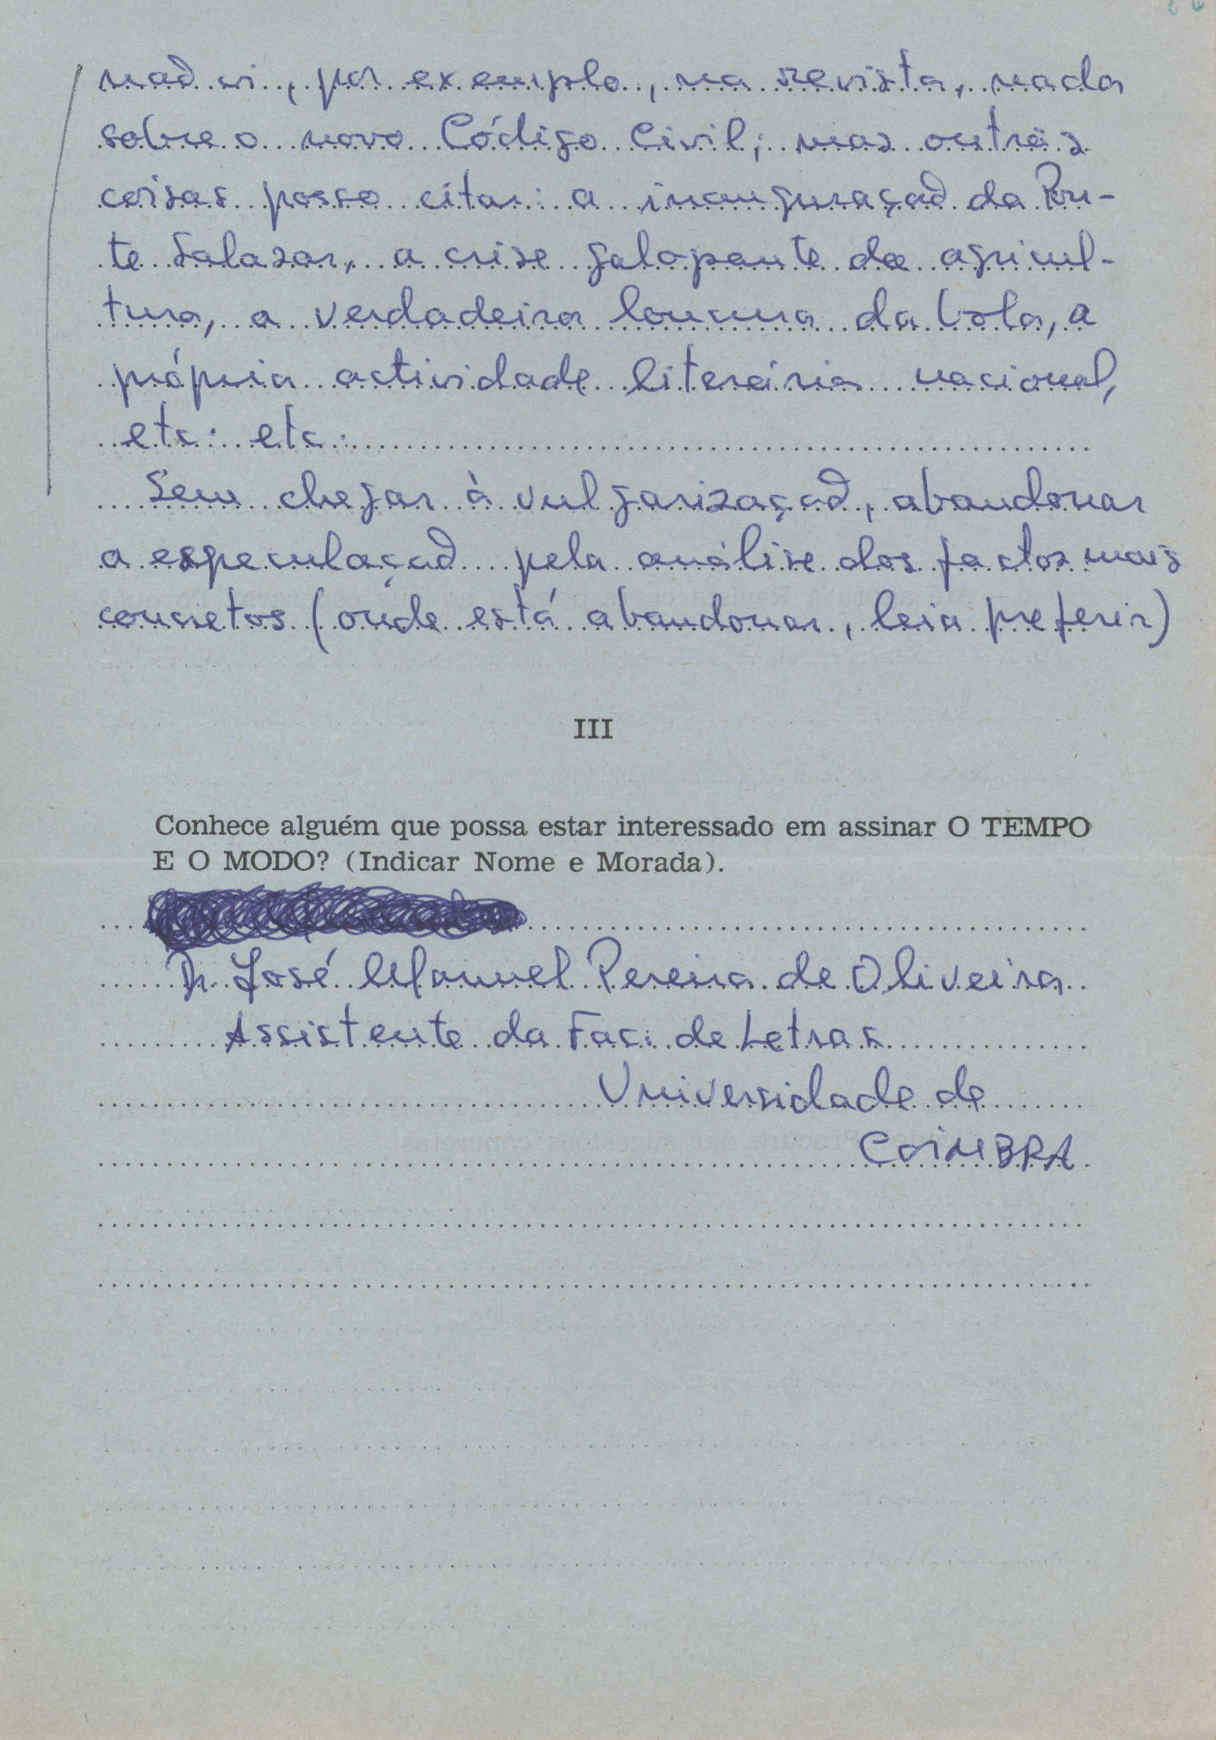 não vi, por exemplo, na revista, nada
sobre o novo Código Civil; mas outras
coisas posso citar: a inauguração da Pon-
te Salazar, a crise galopante da agricul-
tura, a verdadeira loucura da bola, a
própria actividade literária nacional,
etc. etc.
Sem chegar à vulgarização, abandonar
a especulação pela análise dos factos mais
concretos (onde está abandonar, leia preferir)
III
Conhece alguém que possa estar interessado em assinar O TEMPO
E O MODO? (Indicar Nome e Morada).
Dr. José Manuel Pereira de Oliveira
Assistente da Fac. de Letras
Universidade de
COIMBRA